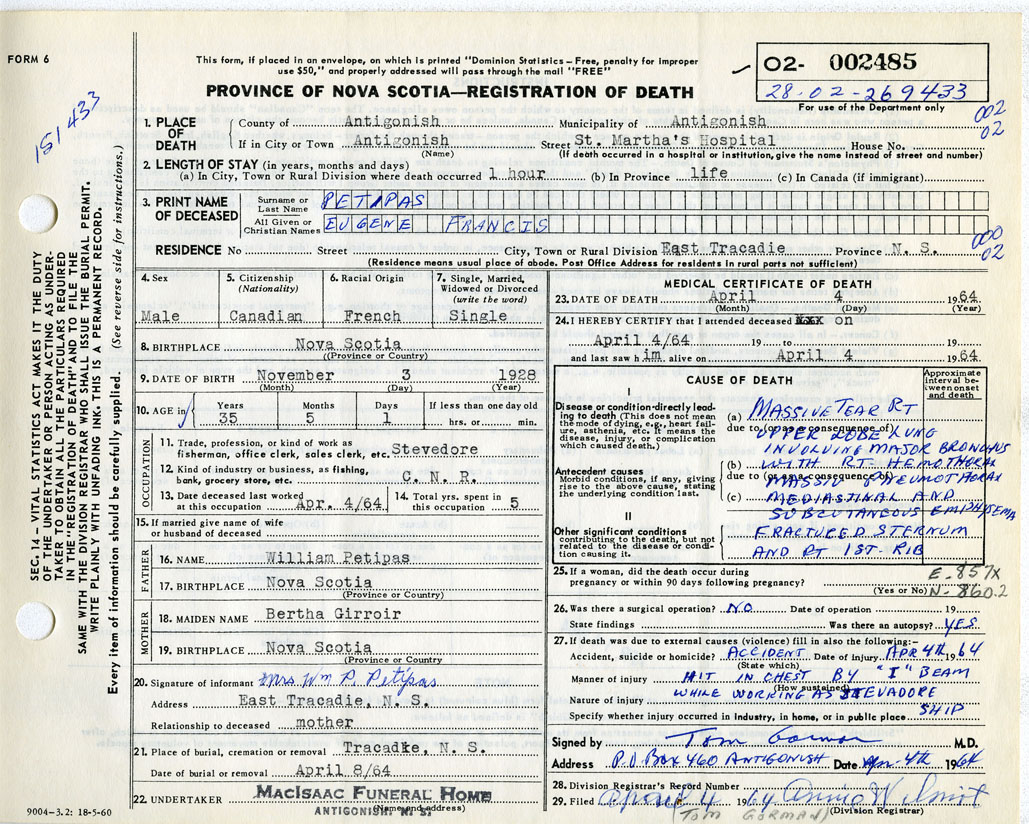 FORM 6
This form, if placed in an envelope, on which is printed "Dominion Statistics – Free, penalty for improper
use $50," and properly addressed will pass through the mail "FREE"
PROVINCE OF NOVA SCOTIA—REGISTRATION OF DEATH
O2- 002485
28.02-269433
For use of the Department only
151433
002
02
1. PLACE OF DEATH
County of Antigonish Municipality of Antigonish
If in City or Town Antigonish Street St. Martha's Hospital House No.
(Name) (If death occurred in a hospital or institution, give the name instead of street and number)
2. LENGTH OF STAY (in years, months and days)
(a) In City, Town or Rural Division where death occurred 1 hour (b) In Province life (c) In Canada (if immigrant)
3. PRINT NAME OF DECEASED
Surname or Last Name PETIPAS
All Given or Christian Names EUGENE FRANCIS
000
02
RESIDENCE No Street City, Town or Rural Division East Tracadie Province N. S.
(Residence means usual place of abode. Post Office Address for residents in rural parts not sufficient)
SEC. 14 – VITAL STATISTICS ACT MAKES IT THE DUTY
OF THE UNDERTAKER OR PERSON ACTING AS UNDER-
TAKER TO OBTAIN ALL THE PARTICULARS REQUIRED
IN THE "REGISTRATION OF DEATH" AND TO FILE THE
SAME WITH THE DIVISION REGISTRAR WHO SHALL ISSUE THE BURIAL PERMIT.
WRITE PLAINLY WITH UNFADING INK. THIS IS A PERMANENT RECORD.
Every item of information should be carefully supplied. (See reverse side for instructions.)
4. Sex
Male
5. Citizenship
(Nationality)
Canadian
6. Racial Origin
French
7. Single, Married,
Widowed or Divorced
(write the word)
Single
8. BIRTHPLACE Nova Scotia
(Province or Country)
9. DATE OF BIRTH November 3 1928
(Month) (Day) (Year)
10. AGE in Years Months Days If less than one day old
35 5 1 hrs. or min.
OCCUPATION
11. Trade, profession, or kind of work as
fisherman, office clerk, sales clerk, etc. Stevedore
12. Kind of industry or business, as fishing,
bank, grocery store, etc. C. N. R.
13. Date deceased last worked
at this occupation Apr. 4/64
14. Total yrs. spent in
this occupation 5
15. If married give name of wife
or husband of deceased
FATHER
16. NAME William Petipas
17. BIRTHPLACE Nova Scotia
(Province or Country)
MOTHER
18. MAIDEN NAME Bertha Girroir
19. BIRTHPLACE Nova Scotia
(Province or Country
20. Signature of informant Mrs Wm P. Petipas
Address East Tracadie, N. S.
Relationship to deceased mother
21. Place of burial, cremation or removal Tracadie, N. S.
Date of burial or removal April 8/64
22. UNDERTAKER MACISAAC FUNERAL HOME
(Name and address)
ANTIGONISH, N. S.
9004-3.2: 18-5-60
MEDICAL CERTIFICATE OF DEATH
23. DATE OF DEATH April 4 1964
(Month) (Day) (Year)
24. I HEREBY CERTIFY that I attended deceased on
April 4/64 19 to 19
and last saw him alive on April 4 1964
CAUSE OF DEATH
Approximate
interval be-
tween onset
and death
I
Disease or condition directly lead-
ing to death (This does not mean
the mode of dying, e.g., heart fail-
ure, asthenia, etc. It means the
disease, injury, or complication
which caused death.)
(a) MASSIVE TEAR RT
due to (or as a consequence of)
UPPER LOBE LUNG
INVOLVING MAJOR BRONCHUS
Antecedent causes
Morbid conditions, if any, giving
rise to the above cause, stating
the underlying condition last.
(b) WITH RT- HEMOTHORAX
due to (or as a consequence of)
MASSIV PNEUMOTHORAX
(c) MEDIASTINAL AND
SUBCUTANEOUS EMPHYSEMA
II
Other significant conditions
contributing to the death, but not
related to the disease or condi-
tion causing it.
FRACTURED STERNUM
AND RT 1ST. RIB
25. If a woman, did the death occur during
pregnancy or within 90 days following pregnancy?
(Yes or No)
E-857X
N-860.2
26. Was there a surgical operation? NO Date of operation 19
State findings Was there an autopsy? YES
27. If death was due to external causes (violence) fill in also the following:–
Accident, suicide or homicide? ACCIDENT Date of injury APR 4th 1964
(State which)
Manner of injury HIT IN CHEST BY "I" BEAM
(How sustained)
Nature of injury WHILE WORKING AS STEVADORE
Specify whether injury occurred in Industry, in home, or in public place SHIP
Signed by Tom Gorman M.D.
Address P.O Box 460 ANTIGONISH Date Apr. 4th 1964
28. Division Registrar's Record Number
29. Filed April 4 1964 Annie
(Division Registrar)
(TOM GORMAN)